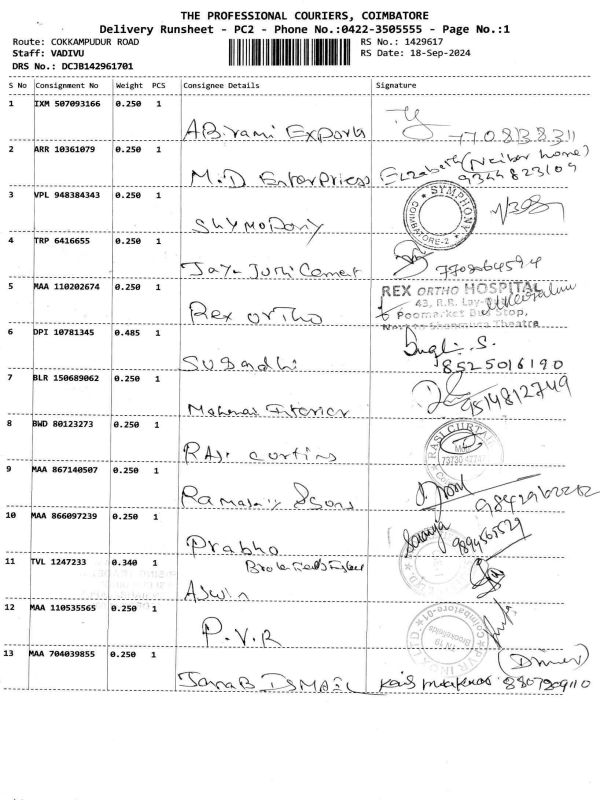 THE PROFESSIONAL COURIERS, COIMBATORE
Delivery Runsheet - PC2 - Phone No.:0422-3505555 - Page No.:1
Route: COKKAMPUDUR ROAD RS No.: 1429617
Staff: VADIVU RS Date: 18-Sep-2024
DRS No.: DCJB142961701
S No Consignment No Weight PCS Consignee Details Signature
1 IXM 507093166 0.250 1
Abirami Exports 7708138311
2 ARR 10361079 0.250 1
M.D Enterprises Elzabeth (Neibor home)
9344823109
3 VPL 948384343 0.250 1 SYMPHONY
COIMBATORE-2
4 TRP 6416655 0.250 1
Jaya Juthi Cement 7708264594
5 MAA 110202674 0.250 1 REX ORTHO HOSPITAL
Rex ortho 43, R.R. Lay-
Poomarket Bus Stop,
Theatre
6 DPI 10781345 0.485 1
Sugandhi S.
8525016190
7 BLR 150689062 0.250 1
9514812749
8 BWD 80123273 0.250 1
Rasi curtins
9 MAA 867140507 0.250 1
Ramasamy & sons
10 MAA 866097239 0.250 1 Saranya
Prabhu 9894565529
11 TVL 1247233 0.340 1
Brokefields
Aswin
12 MAA 110535565 0.250 1 Coimbatore-01
P.V.R Brookefields
13 MAA 704039855 0.250 1 (Driver)
Janab ISMAIL 8807209110